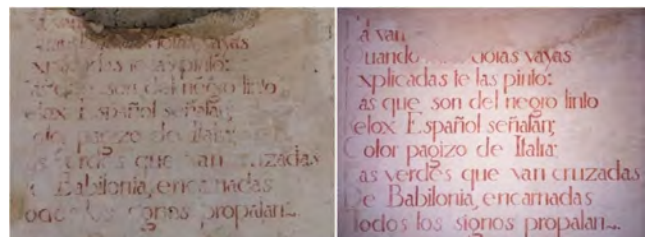 xplicadas te las pinto:
son del negro tinto
elox Español señalan;
olor pagizo de Italia;
as verdes que van cruzadas
e Babilonia, encarnadas
todos los signos propalan~.
a van
Quando vayas
Explicadas te las pinto:
as que son del negro tinto
elox Español señalan;
Color pagizo de Italia:
as verdes que van cruzadas
De Babilonia, encarnadas
todos los signos propalan~.